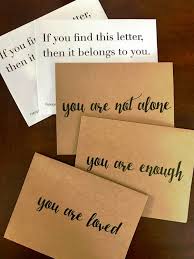 If you find this letter,
then it
If you find this letter,
then it belongs to you.
you are not alone
you are enough
you are loved